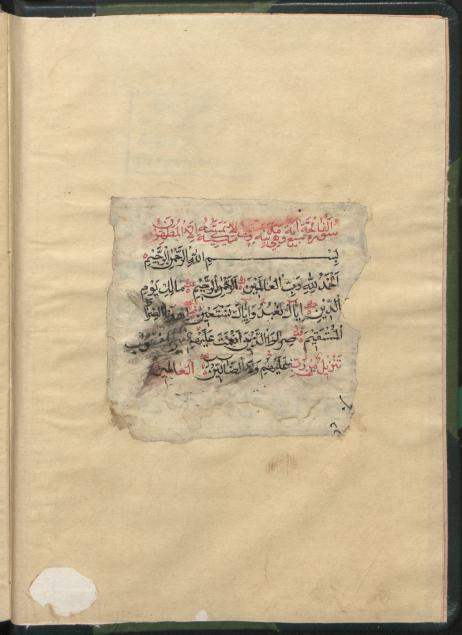 سورة الفاتحة لا يمسه إلا المطهرون
بسم الله الرحمن الرحيم
الحمد لله رب العالمين الرحمن الرحيم مالك يوم
الدين إياك نعبد وإياك نستعين اهدنا الصراط
المستقيم صراط الذين أنعمت عليهم غير المغضوب
تنزيل من رب عليهم ولا الضالين العالمين